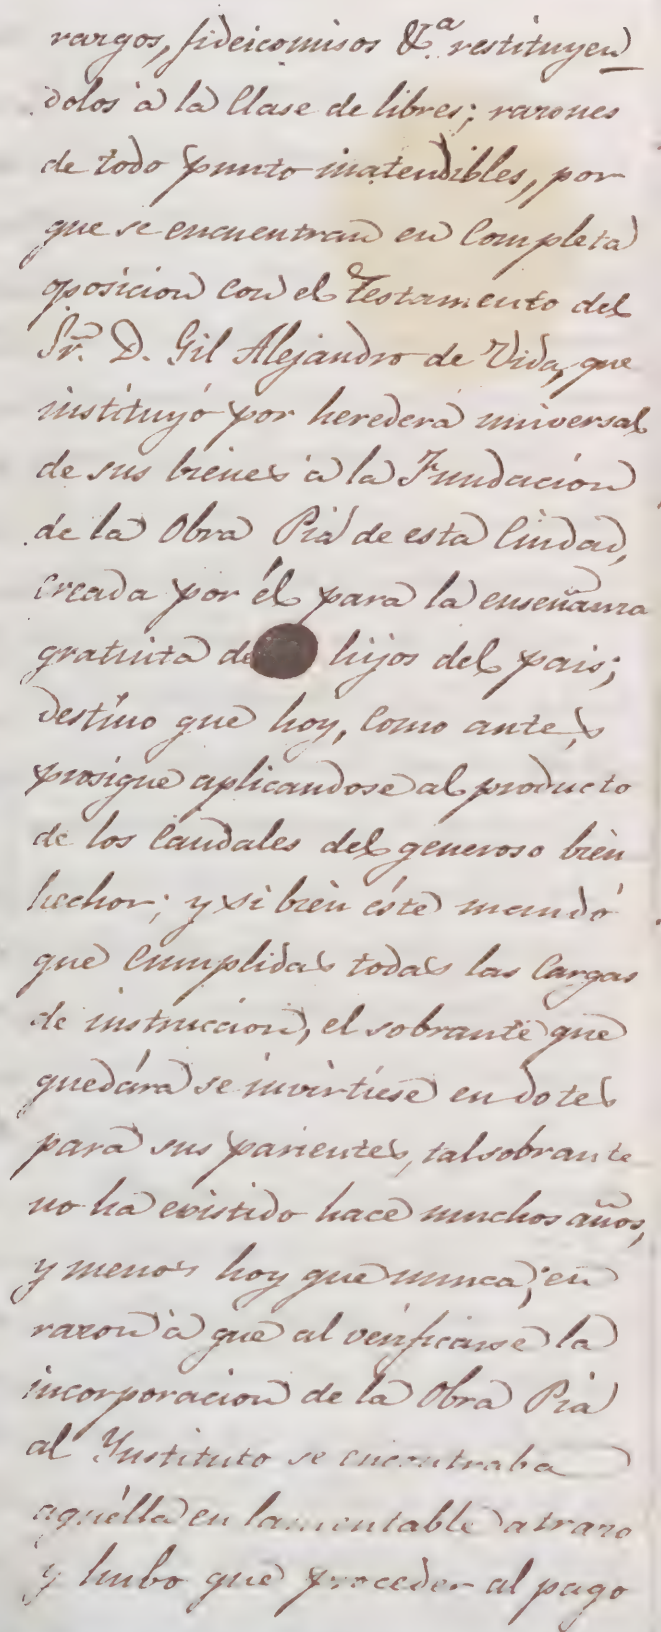 razgos, fideicomisos &.ª restituyen
dolos á la Clase de libres; razones
de todo punto inatendibles, por
que se encuentran en Completa
oposicion con el Testamento del
Sr. D. Gil Alejandro de Vida, que
instituyó por heredera universal
de sus bienes á la Fundacion
de la Obra Pia de esta Ciudad,
Creada por él para la enseñanza
gratuita de hijos del pais;
destino que hoy, Como antes,
prosigue aplicandose al producto
de los Caudales del generoso bien
hechor; y si bien éste mandó
que Cumplidas todas las Cargas
de instruccion, el sobrante que
quedára se invirtiese en dotes
para sus parientes, tal sobrante
no ha existido hace muchos años,
y menos hoy que nunca; en
razon á que al verificarse la
incorporacion de la Obra Pia
al Ynstituto se encontraba
aquélla en lamentable atrazo
y hubo que proceder al pago